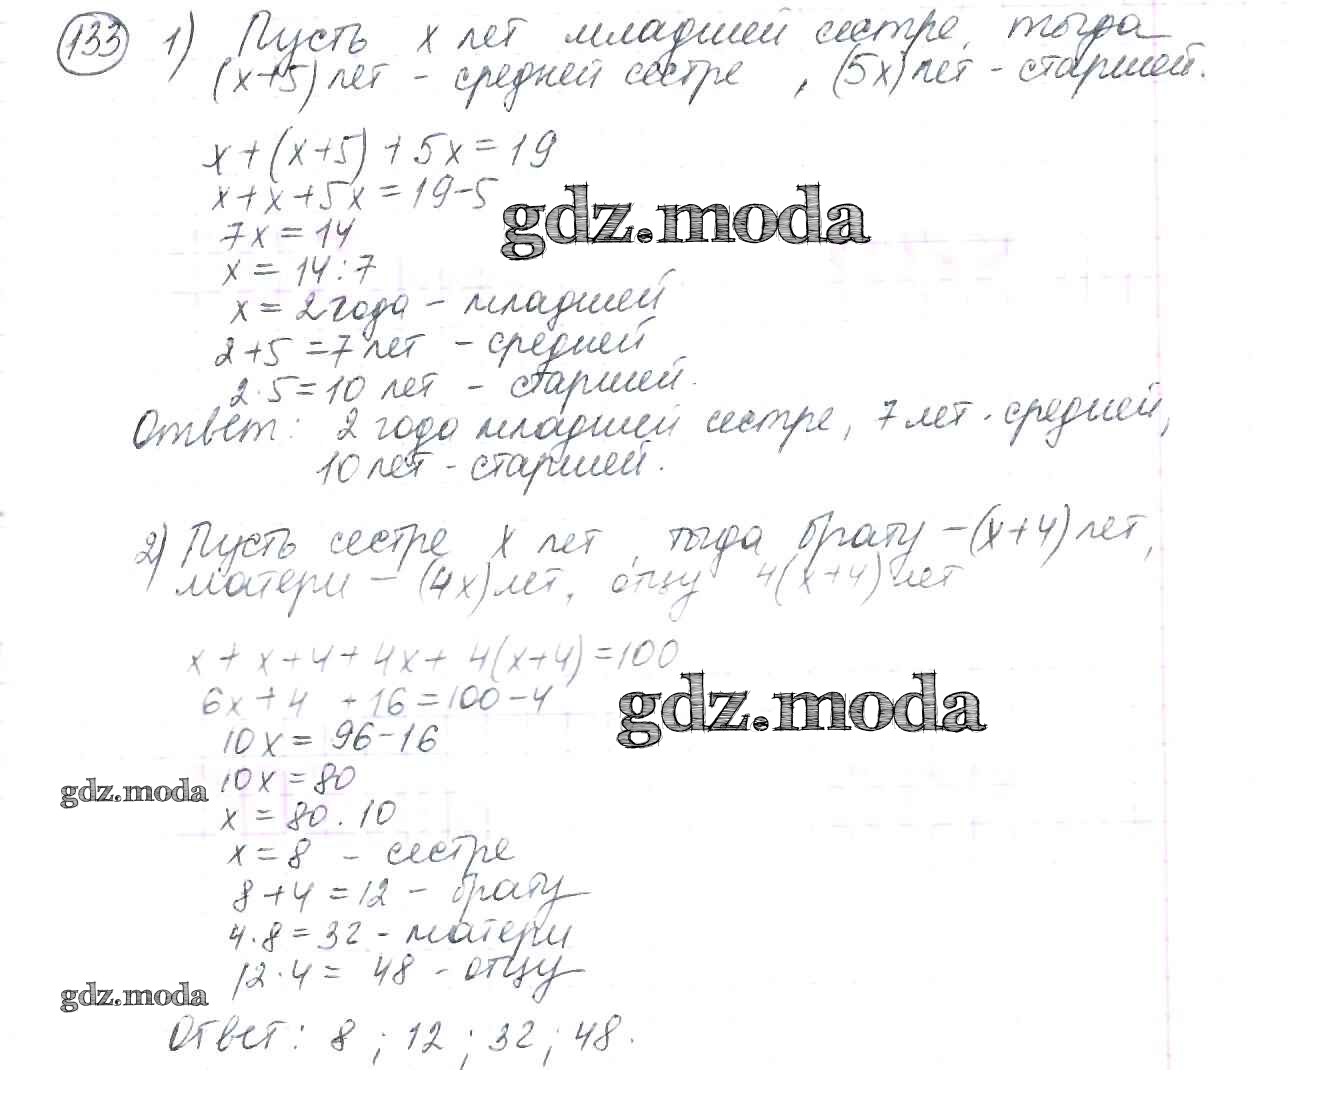 133 1) Пусть x лет младшей сестре, тогда
(x+5) лет - средней сестре , (5x) лет - старшей.
x + (x+5) + 5x = 19
x + x + 5x = 19-5
gdz.moda
7x = 14
x = 14:7
x = 2 года - младшей
2+5 = 7 лет - средней
2·5 = 10 лет - старшей.
Ответ: 2 года младшей сестре, 7 лет - средней,
10 лет - старшей.
2) Пусть сестре x лет, тогда брату - (x+4) лет,
матери - (4x) лет, отцу 4(x+4) лет
x + x+4 + 4x + 4(x+4) = 100
6x + 4 + 16 = 100-4
gdz.moda
10x = 96-16
10x = 80
gdz.moda
x = 80.10
x = 8 - сестре
8+4 = 12 - брату
4·8 = 32 - матери
12·4 = 48 - отцу
gdz.moda
Ответ: 8 ; 12 ; 32 ; 48.